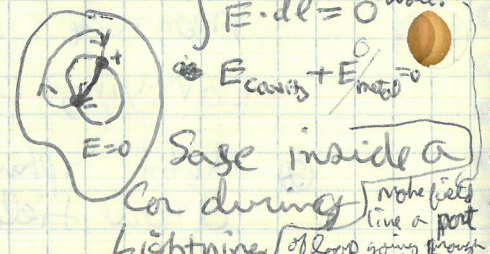 ∫ E · dl = 0
+
E cavity + E metal = 0
0
E=0
Safe inside a
Car during
Lightning
make field
line a part
of loop going through